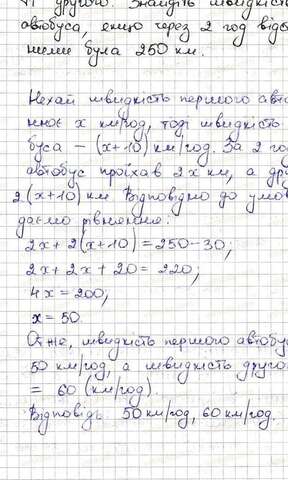 другого. Знайдіть швидкіст
автобуса, якщо через 2 год відс
ними була 250 км.
Нехай швидкість першого авто
нює х км/год, тоді швидкість
буса – (х+10) км/год. За 2 год
автобус проїхав 2х км, а дру
2(х+10) км. Відповідно до умов
даємо рівняння:
2х + 2(х+10) = 250-30;
2х + 2х + 20 = 220;
4х = 200;
х = 50.
Отже, швидкість першого автобу
50 км/год, а швидкість друго
= 60 (км/год).
Відповідь: 50 км/год, 60 км/год.